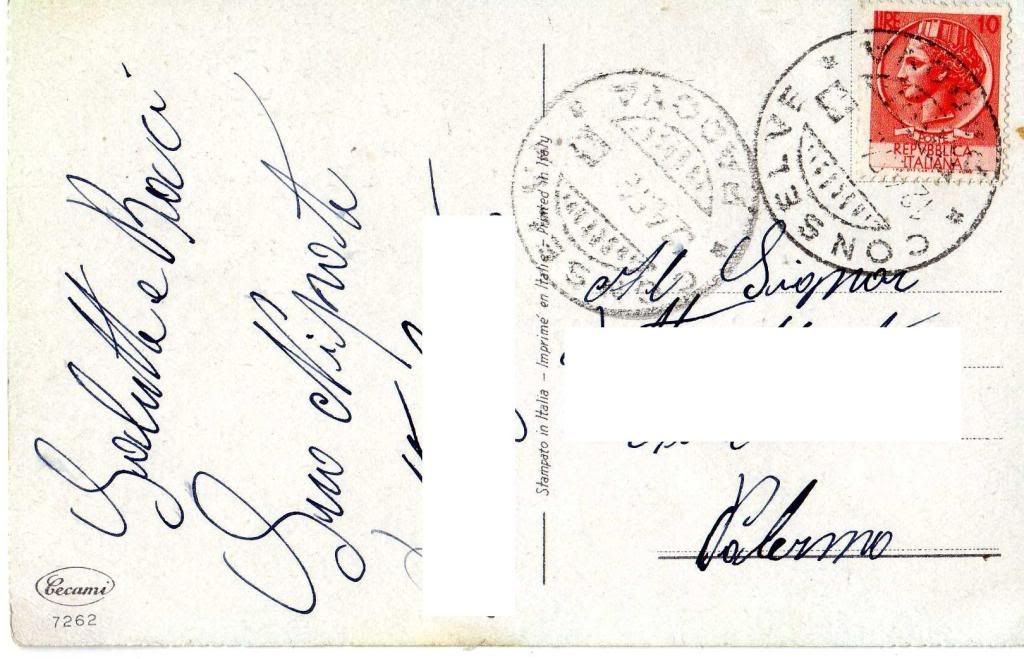 Salutti e Baci
Suo Nipote
Cecami
7262
Stampato in Italia - Imprimé en Italie - Printed in Italy
LIRE 10
POSTE
REPVBBLICA
ITALIANA
CONSELVE
PADOVA
CONSELVE
Al Signor
Palermo